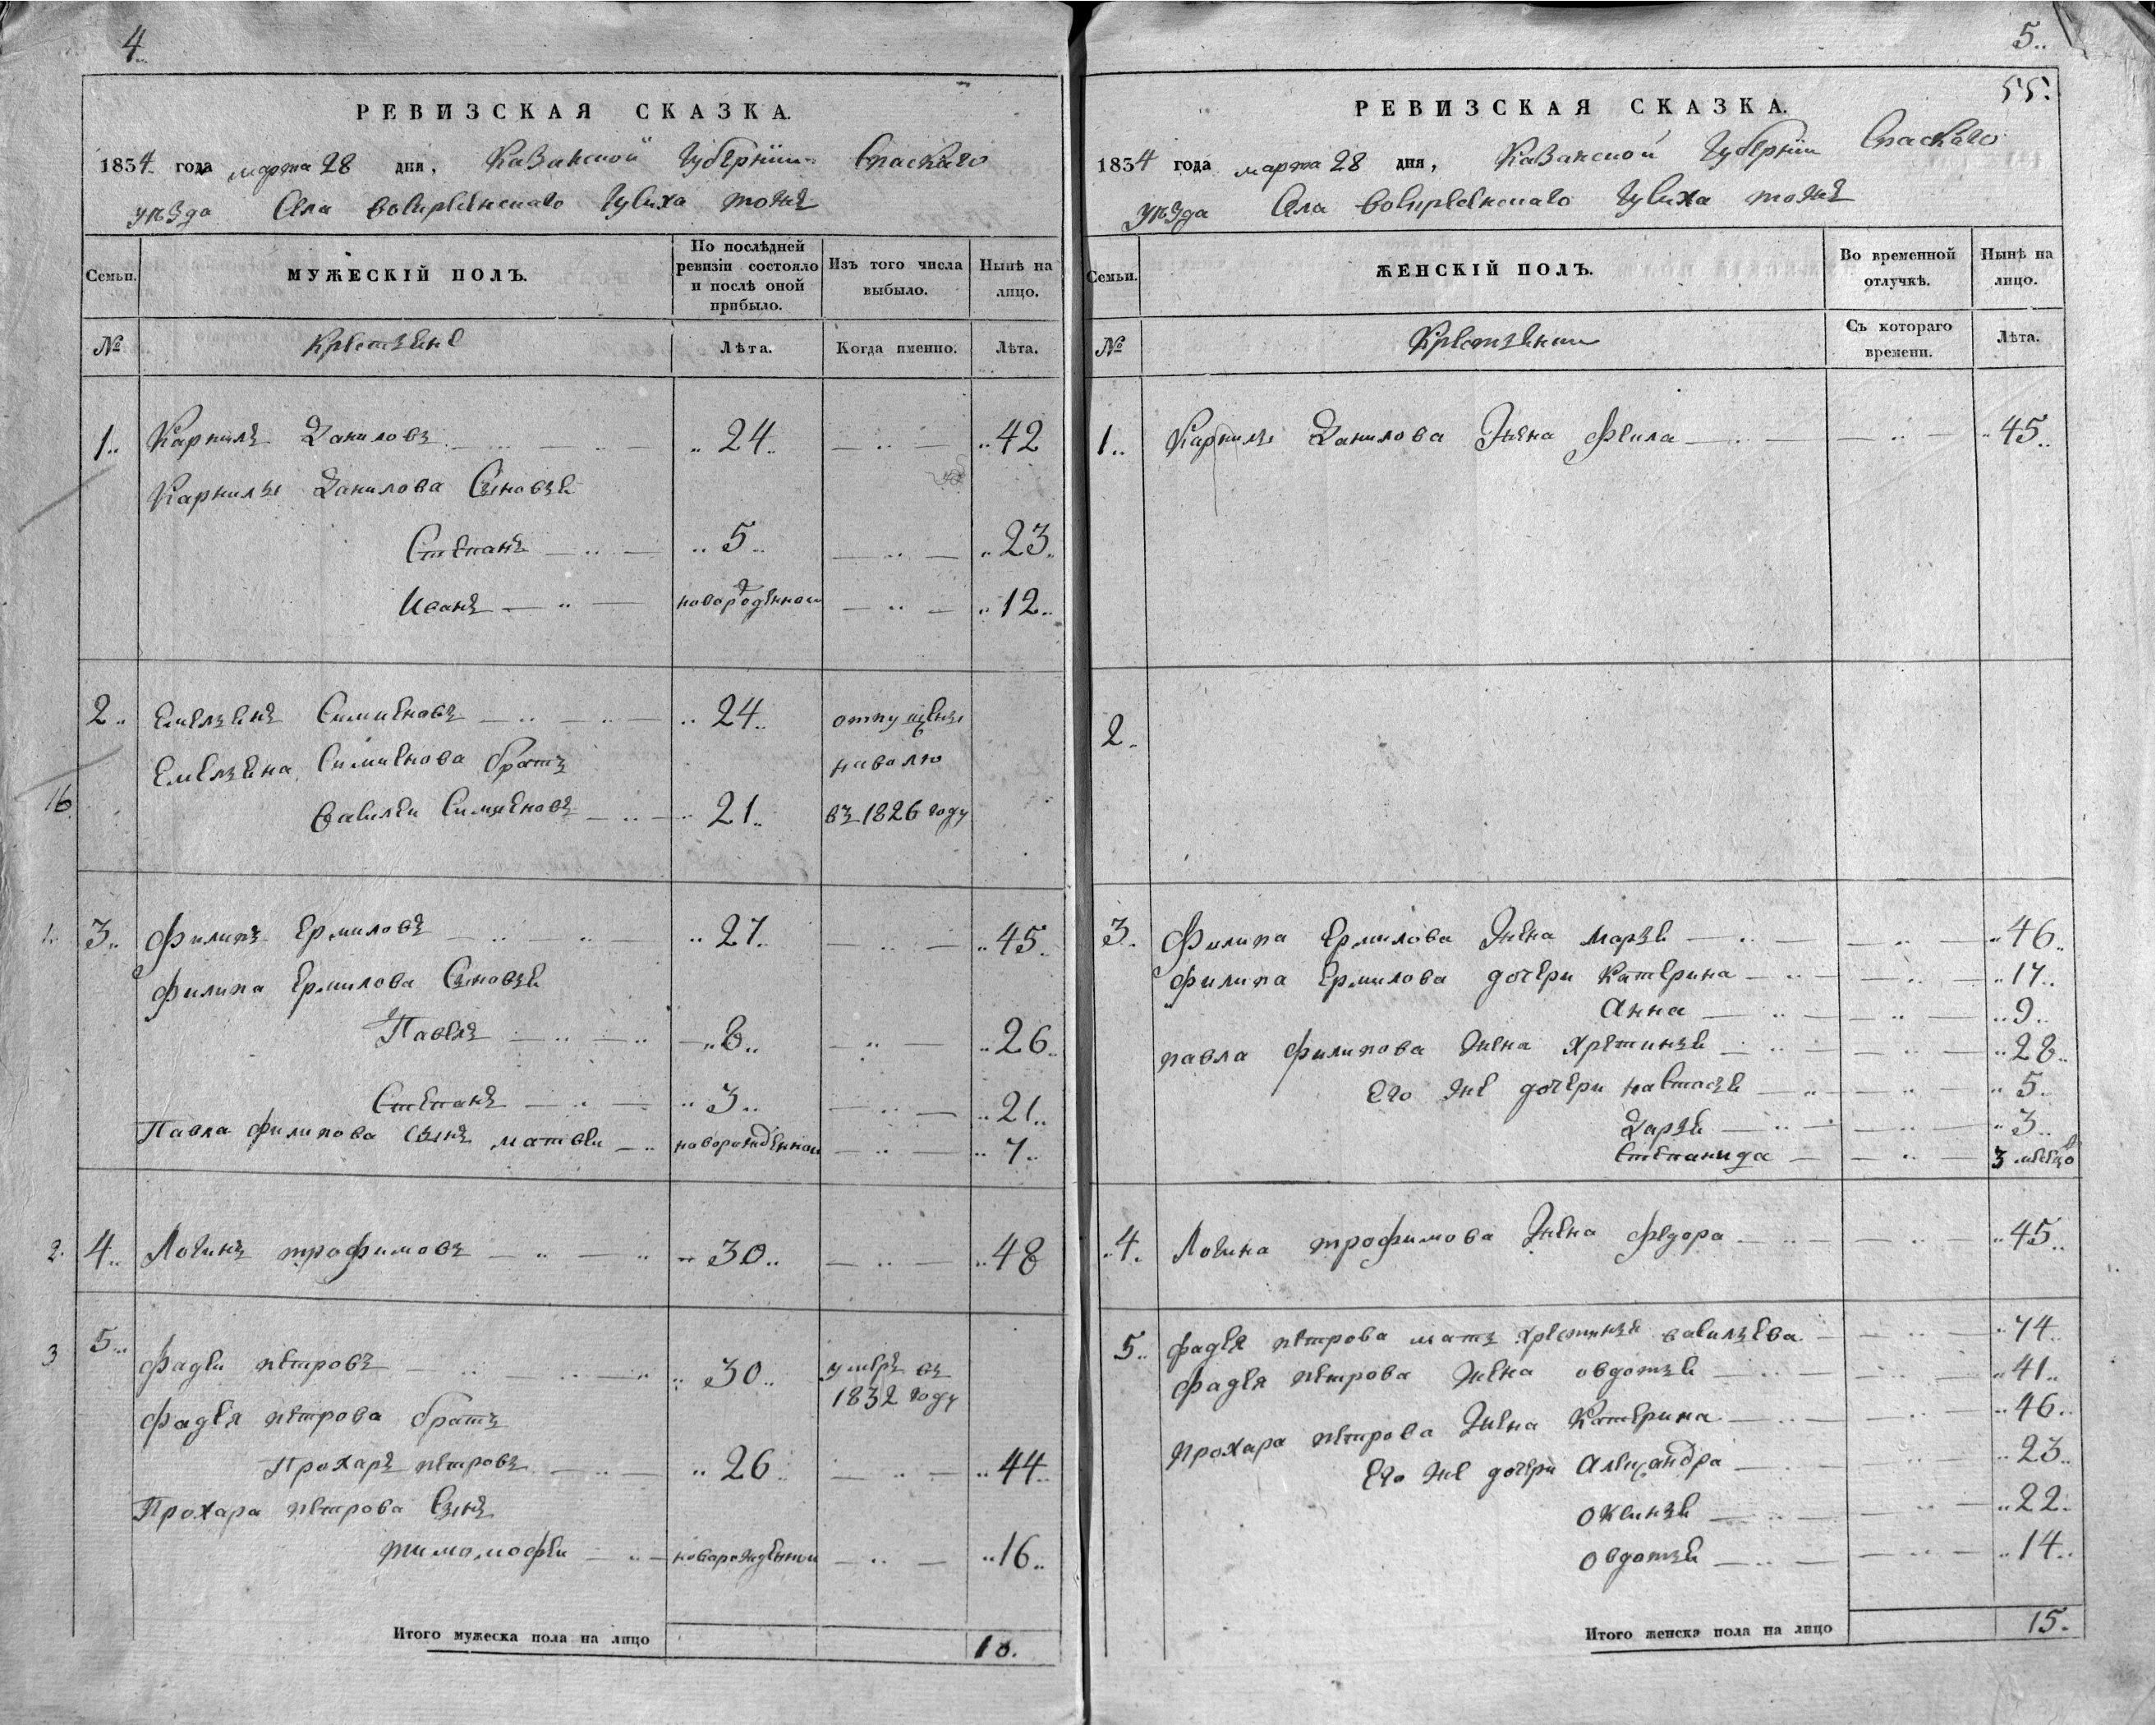 4.
РЕВИЗСКАЯ СКАЗКА.
1834 года марта 28 дня, Казанской Губернiи Спаскаго
уѣзда Села тожъ
Семьи.
МУЖЕСКIЙ ПОЛЪ.
По послѣдней ревизiи состояло и послѣ оной прибыло.
Изъ того числа выбыло.
Нынѣ на лицо.
№
Крестьяне
Лѣта.
Когда именно.
Лѣта.
1.. Карнилъ Даниловъ 24 42
Карнилы Данилова Сыновьи
Степанъ 5 23
Иванъ новорожденнои 12
2.. Емельянъ Симионовъ 24 отпущены
Емельяна Симионова братъ наволю
16
Василеи Симионовъ 21 въ 1826 году
1. 3.. Филипъ Ермиловъ 27 45
Филипа Ермилова Сыновьи
Павелъ 8 26
Степанъ 3 21
Павла Филипова Сынъ матвеи новорожденнои 7
2. 4.. Логинъ трофимовъ 30 48
3 5.. Фадеи петровъ 30 умеръ въ 1832 году
Фадея петрова братъ
Прохаръ петровъ 26 44
Прохара петрова Сынъ
тимомофеи новорожденнои 16
Итого мужеска пола на лицо 10.
5..
55.
РЕВИЗСКАЯ СКАЗКА.
1834 года марта 28 дня, Казанской Губернiи Спаскаго
уѣзда Села тожъ
Семьи.
ЖЕНСКIЙ ПОЛЪ.
Во временной отлучкѣ.
Нынѣ на лицо.
№
Крестьянки
Съ котораго времени.
Лѣта.
1.. Карнилы Данилова Жена Фекла 45
2.
3. Филипа Ермилова Жена Марьи 46
Филипа Ермилова дочери Катерина 17
Анна 9
павла Филипова Жена Хретиньи 28
Его же дочери настасьи 5
Дарьи 3
Степанида 3 месецо
4. Логина трофимова Жена федора 45
5.. фадея петрова мать Хрестиньи васильева 74
Фадея петрова Жена овдотьи 41
прохара петрова Жена Катерина 46
Его же дочери Александра 23
оксиньи 22
овдотьи 14
Итого женска пола на лицо 15.